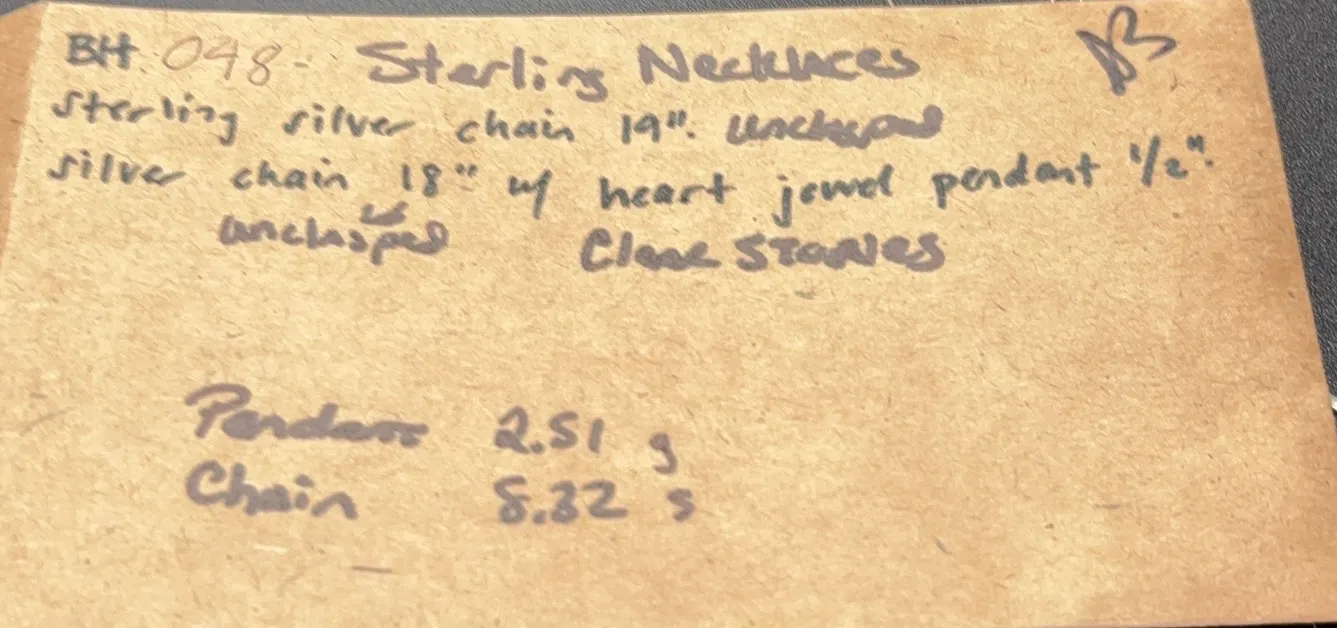 BH. 048 - Sterling Necklaces
sterling silver chain 19". unclasped
silver chain 18" w/ heart jewel pendant 1/2".
unclasped Clear STONES
Pendant 2.51 g
Chain 8.32 g